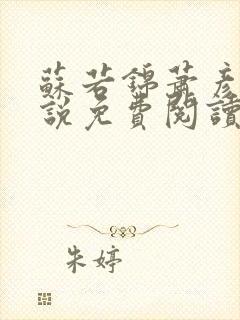 蘇若錦蕭彥
說免費閱讀
朱婷